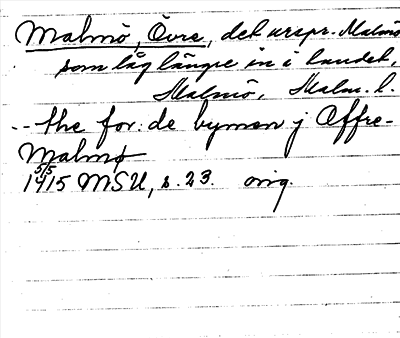 Malmö, Övre, det urspr. Malmö
som låg längre in i landet,
Malmö, Malm. l.
-- the for: de bymen j Offre-
Malmø
5/5
1415 MSU, s. 23. orig.